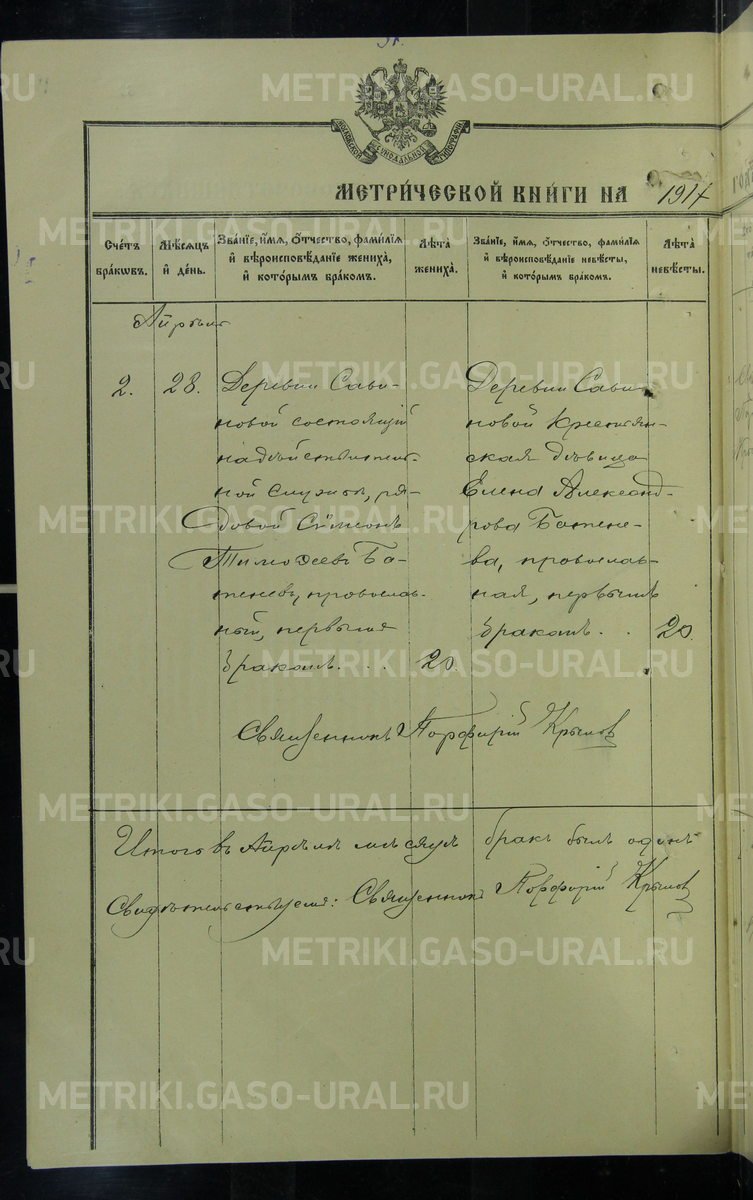 МОСКОВСКОЙ СѴНОДАЛЬНОЙ ТИПОГРАФІИ
МЕТРИ́ЧЕСКОЙ КНИ́ГИ НА 1917
Сче́тъ бра́кωвъ.
Мѣ́сяцъ и҆ де́нь.
Зва́нїе, и҆́мѧ, ѻ҆́тчество, фами́лїѧ и҆ вѣроисповѣ́данїе жениха̀, и҆ кото́рымъ бра́комъ.
Лѣ́та жениха̀.
Зва́нїе, и҆́мѧ, ѻ҆́тчество, фами́лїѧ и҆ вѣроисповѣ́данїе невѣ́сты, и҆ кото́рымъ бра́комъ.
Лѣ́та невѣ́сты.
Апрѣль
2.
28.
Деревни Сави-
новой состоящій
на дѣйствитель-
ной службѣ, ря-
довой Симеонъ
Тимоѳеевъ Ба-
теневъ, православ-
ный, первымъ
бракомъ. . . .
20.
Деревни Сави-
новой крестьян-
ская дѣвица
Елена Александ-
рова Батене-
ва, православ-
ная, первымъ
бракомъ. . .
20.
Священникъ Порфирій Крыловъ
Итого въ Апрѣлѣ мѣсяцѣ бракъ былъ одинъ
Свидѣтельствуемъ: Священникъ Порфирій Крыловъ
METRIKI.GASO-URAL.RU